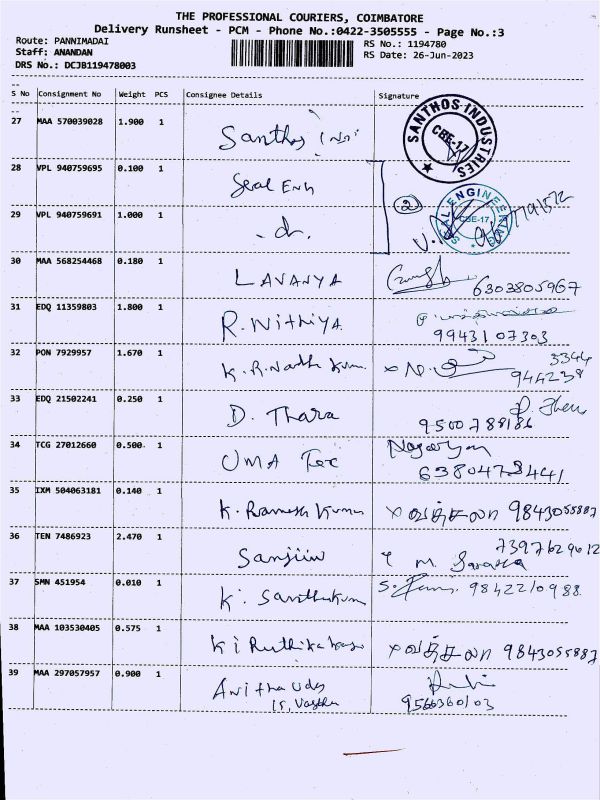 THE PROFESSIONAL COURIERS, COIMBATORE
Delivery Runsheet - PCM - Phone No.:0422-3505555 - Page No.:3
Route: PANNIMADAI
RS No.: 1194780
Staff: ANANDAN
RS Date: 26-Jun-2023
DRS No.: DCJB119478003
S No Consignment No Weight PCS Consignee Details Signature
27 MAA 570039028 1.900 1 Santhos
SANTHOS INDUSTRIES
CBE-17
28 VPL 940759695 0.100 1 Seal Eng
2
SEAL ENGINEERING
CBE-17
29 VPL 940759691 1.000 1
30 MAA 568254468 0.180 1 LAVANYA
6303805967
31 EDQ 11359803 1.800 1 R. Nithiya
9943107303
32 PON 7929957 1.670 1 K.R.
3344
944238
33 EDQ 21502241 0.250 1 D. Thara
9500788186
34 TCG 27012660 0.500 1 UMA Tex
6380473441
35 IXM 504063181 0.140 1 K. Ramesh Kumar வத்சலா 9843055887
36 TEN 7486923 2.470 1 Sanjiiv
7397629612
37 SMN 451954 0.010 1 K. Santhukum 9842210988
38 MAA 103530405 0.575 1 வத்சலா 9843055887
39 MAA 297057957 0.900 1 Anitha Uday
15, Vastu 9566360103